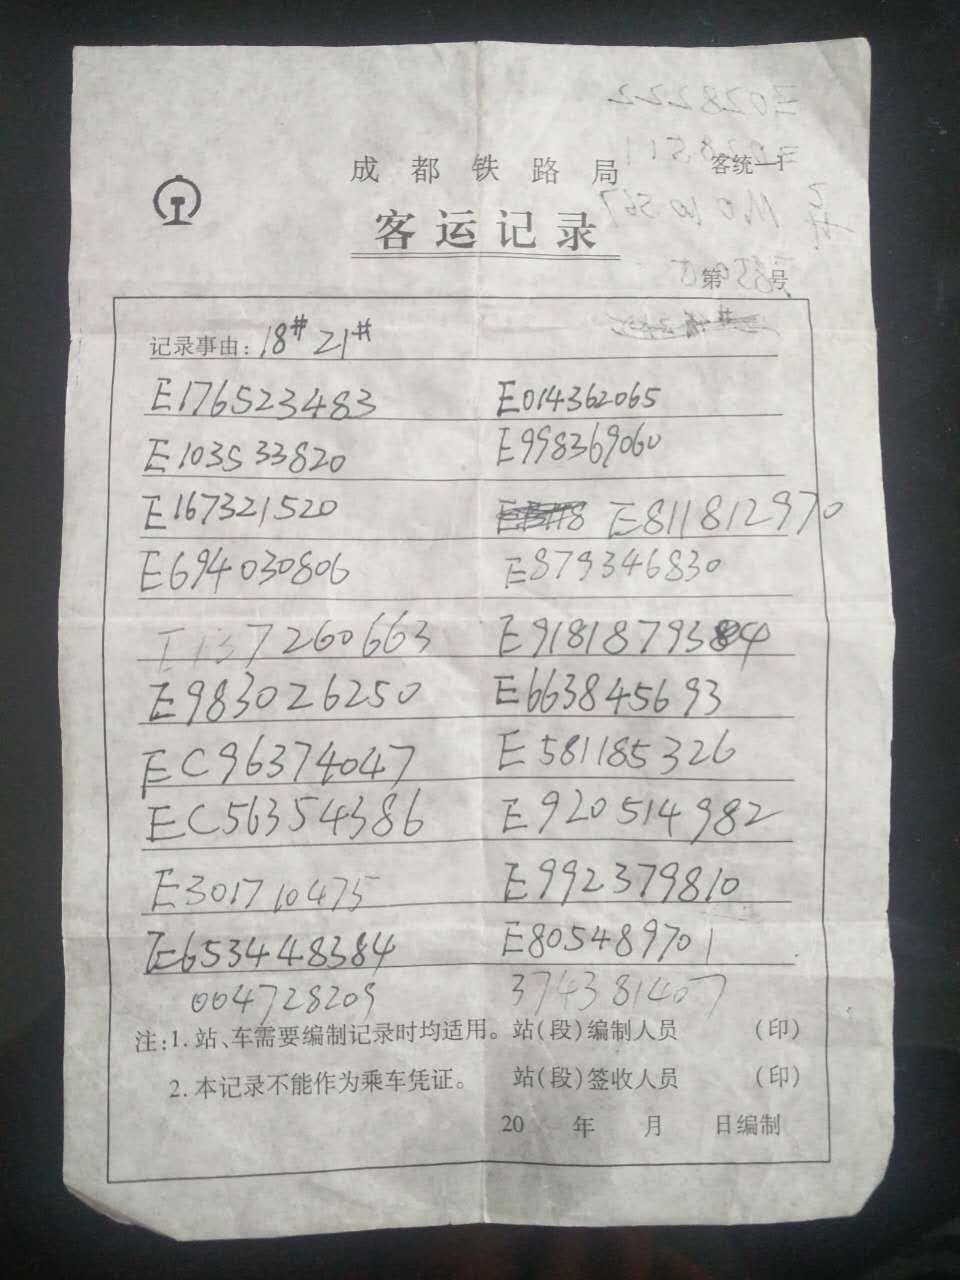 成都铁路局
客统一1
客运记录
第 号
记录事由: 18# 21#
E176523483 E014362065
E103533820 E998369060
E167321520 E811812970
E694030806 E879346830
E137260663 E918187938
E983026250 E663845693
EC96374047 E581185326
EC56354386 E920514982
E301710475 E992379810
E653448384 E805489701
004728209 374381407
注:1.站、车需要编制记录时均适用。 站(段)编制人员 (印)
2.本记录不能作为乘车凭证。 站(段)签收人员 (印)
20 年 月 日编制